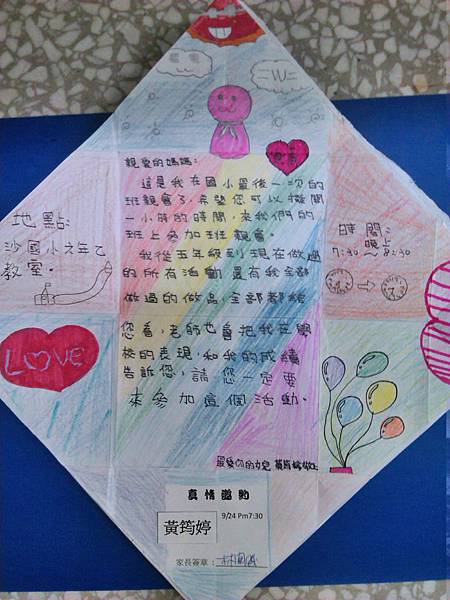 =W=
親愛的媽媽:
這是我在國小最後一次的
班親會了,希望您可以撥開
一小時的時間,來我們的
班上參加班親會。
我從五年級到現在做過
的所有活動還有我全部
做過的做品,全部都給
您看,老師也會把我在學
校的表現,和我的成績
告訴您,請您一定要
來參加這個活動。
最愛你的女兒 黃筠婷敬上
地點:
沙國小六年乙
教室。
時間:
晚上
7:30~8:30
LOVE
真情邀約
黃筠婷
9/24 Pm7:30
家長簽章:林